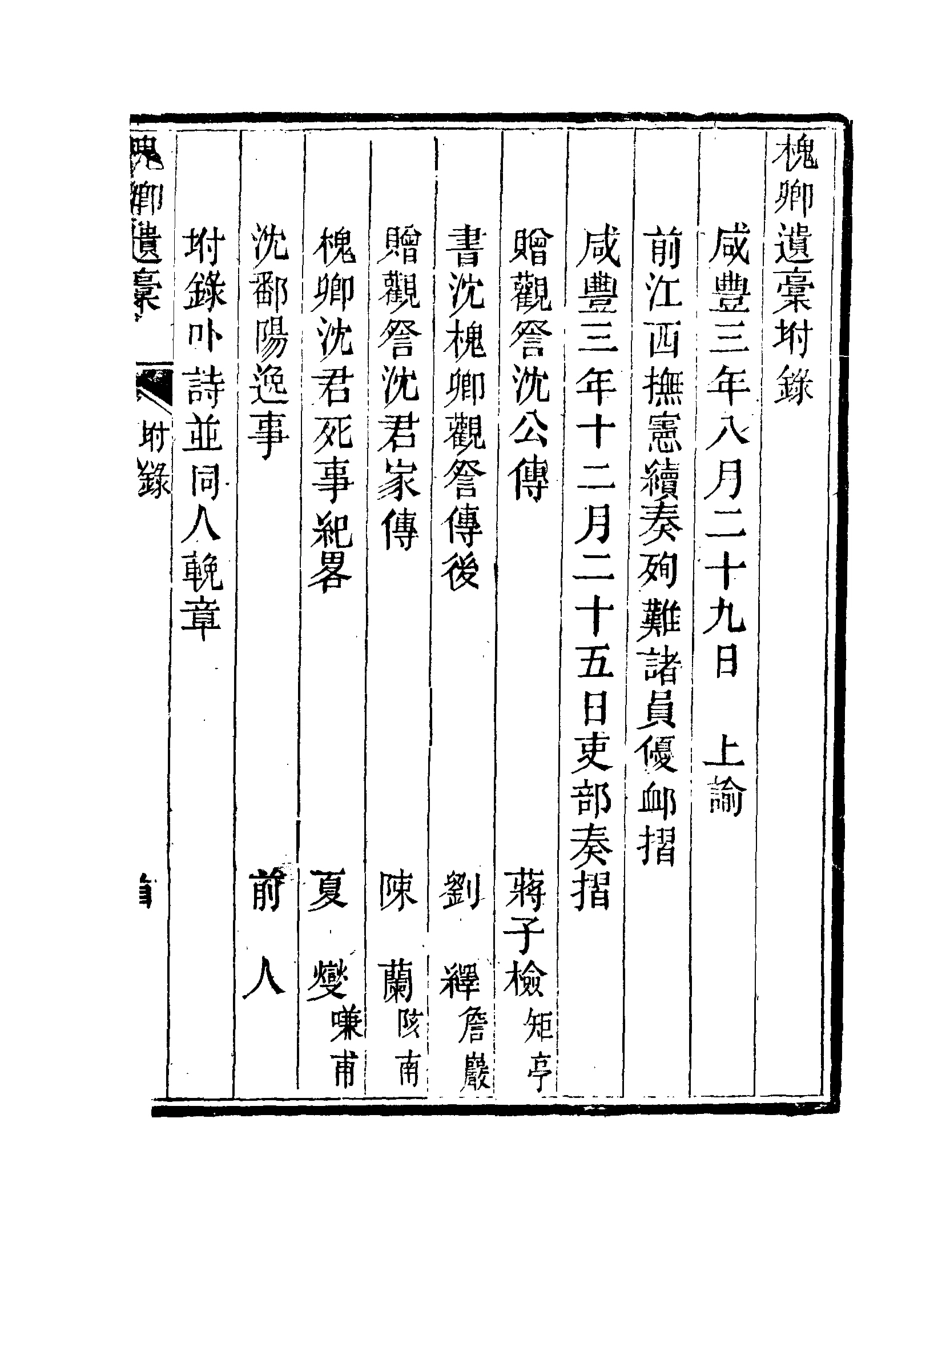 槐卿遺稾坿錄
咸豐三年八月二十九日　上諭
前江西撫憲續奏殉難諸員優卹摺
咸豐三年十二月二十五日吏部奏摺
贈觀詧沈公傳　蔣子檢矩亭
書沈槐卿觀詧傳後　劉　繹詹巖
贈觀詧沈君家傳　陳　蘭陔南
槐卿沈君死事紀畧　夏　燮嗛甫
沈鄱陽逸事　前　人
坿錄卟詩並同人輓章
槐卿遺稾　坿錄　首